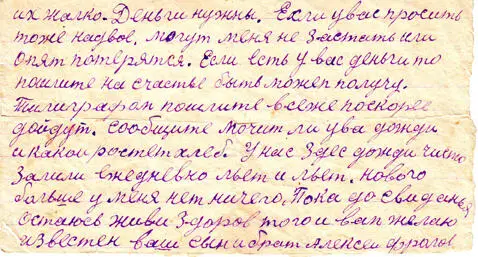 их жалко. Деньги нужны. Ехли у вас просить
тоже надвое, могут меня не застать или
опят потерятся. Если есть у вас деньги то
пошлите на счастье быть можеп получу.
Тилиграфап пошлите все же поскорее
дойдут. сообщите мочит ли у ва дожди
и какой ростет хлеб. У нас здес дожди чисто
залили ежедневно льет и льет. нового
больше у меня нет ничего. Пока до свиданья
остаюсь живи здоров того и вап желаю
известен ваш сын и брат Алексей Фролов